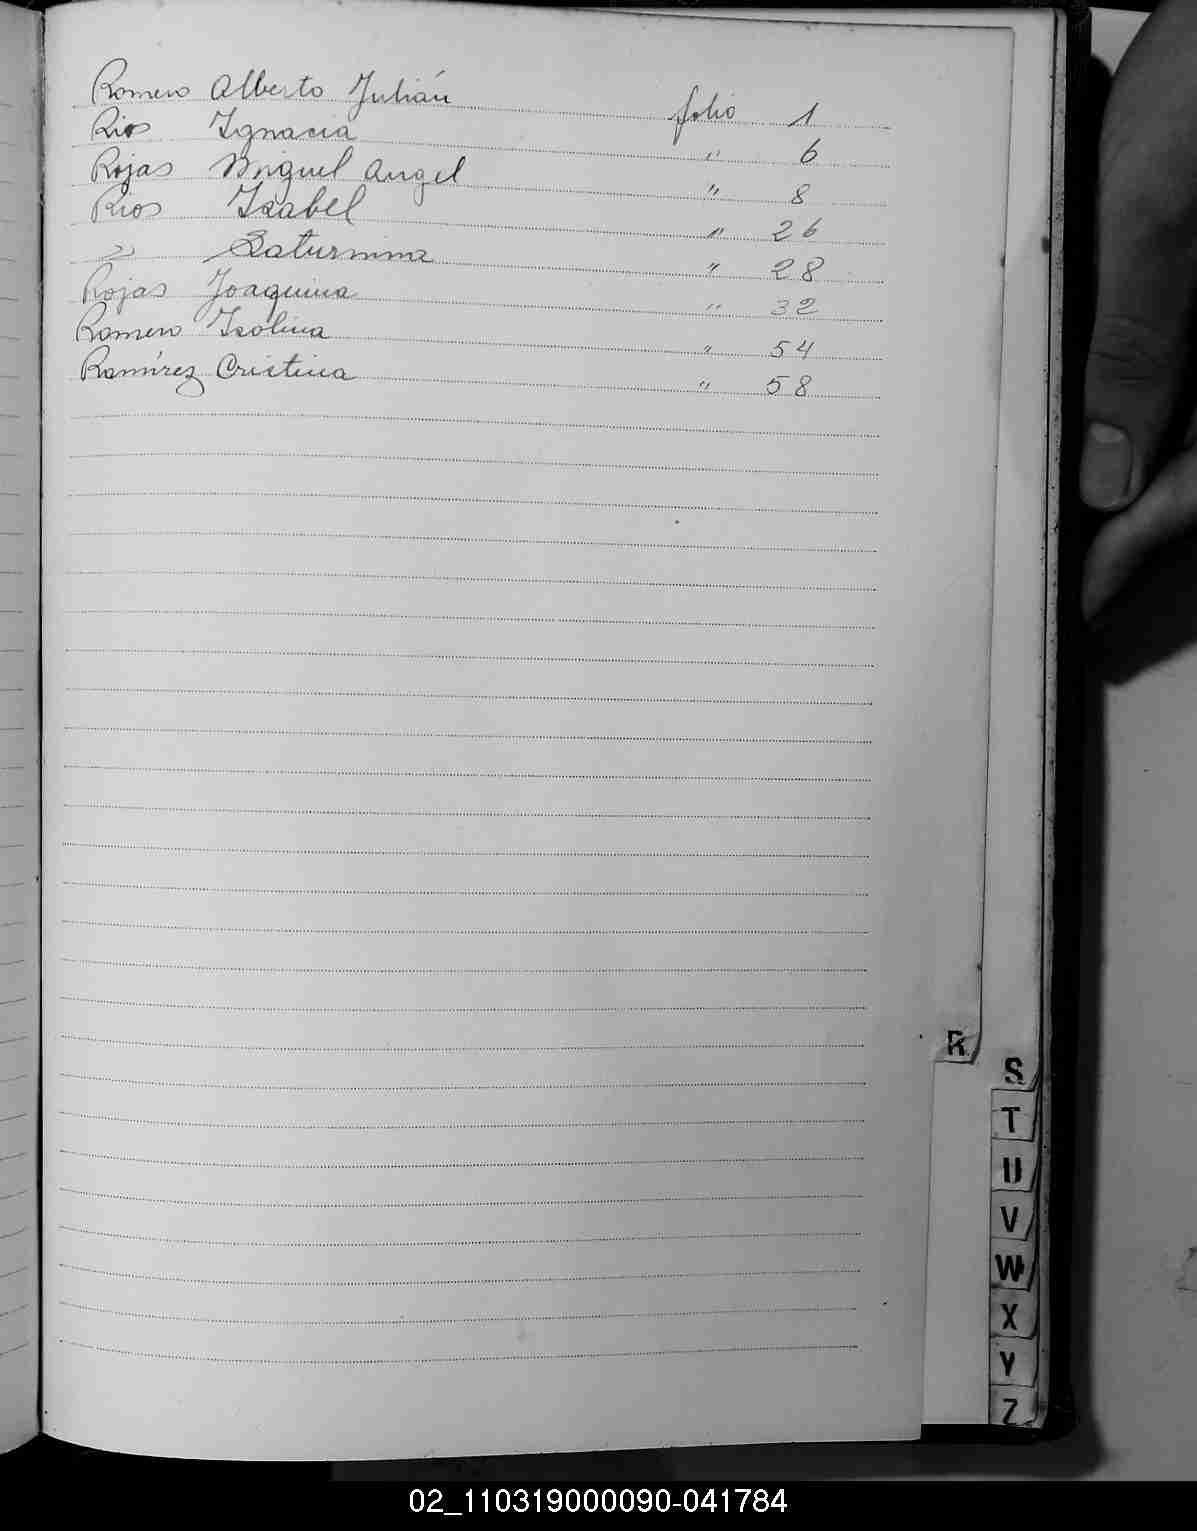 Romero Alberto Julián folio 1
Rios Ignacia " 6
Rojas Miguel Angel " 8
Rios Isabel " 26
" Saturnina " 28
Rojas Joaquina " 32
Romero Isolina " 54
Ramírez Cristina " 58
R
S
T
U
V
W
X
Y
Z
02_110319000090-041784